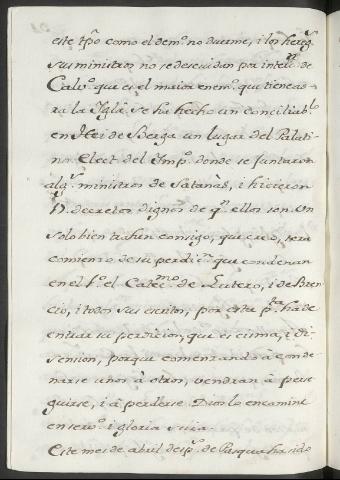 este tpõ como el demº no duerme, i los hereg.s
sus ministros no se descuidan por inter.n de
Calvº que es el maior enemº qui tiene aora
la Iglª se ha hecho un conciliab.lo
en Heidesberga un lugar del Palati
no Elect. del Impº donde se juntaron
alg.s ministros de Satanàs, i hicieron
decretos dignos de q.n ellos son. Un
solo bien trahen consigo, que creo, sera
comienzo de su perdic.n que condenan
en el Cate.mo de Lutero, i de Bren
cio, i todos sus escritos, por esta p.ta ha de
entrar su perdicion, que es cisma, i di
sension, porque comenzando à conde
narse unos à otros, vendran à perse
guirse, i à perderse. Dios lo encamine
en servº i gloria suia.
Este mes de abril desp.s de Pasqua ha sido